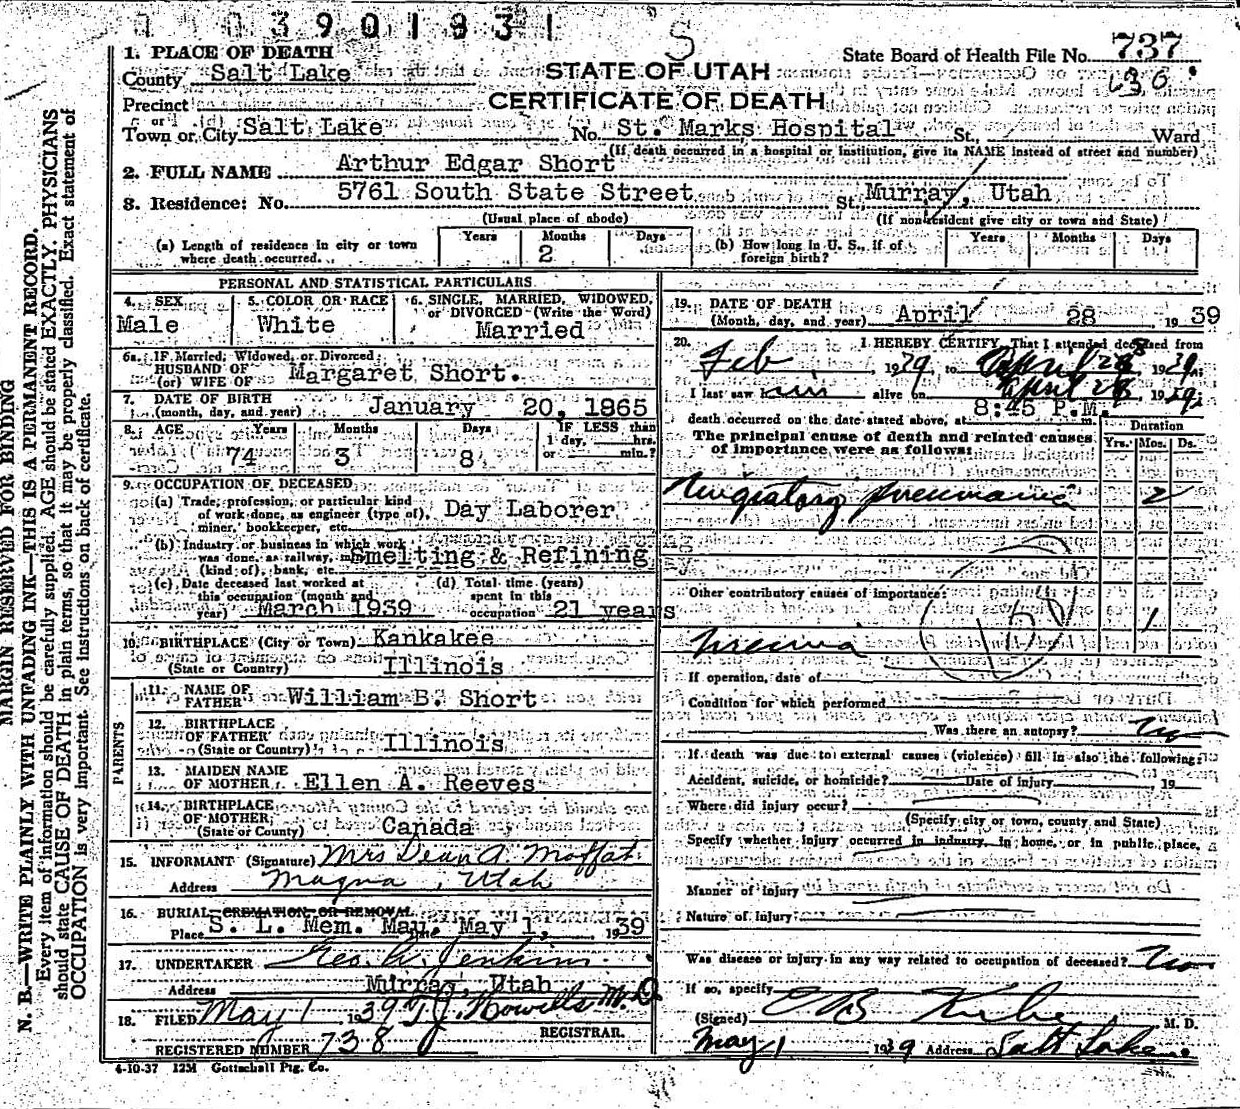 390 1931
S
1. PLACE OF DEATH
County Salt Lake
Precinct
or
Town or City Salt Lake No. St. Marks Hospital St. Ward
(If death occurred in a hospital or institution, give its NAME instead of street and number)
STATE OF UTAH
CERTIFICATE OF DEATH
State Board of Health File No. 737
2. FULL NAME Arthur Edgar Short
3. Residence: No. 5761 South State Street St. Murray, Utah
(Usual place of abode) (If nonresident give city or town and State)
(a) Length of residence in city or town where death occurred. Years Months 2 Days
(b) How long in U. S., if of foreign birth? Years Months Days
PERSONAL AND STATISTICAL PARTICULARS
4. SEX Male
5. COLOR OR RACE White
6. SINGLE, MARRIED, WIDOWED, or DIVORCED (Write the Word) Married
6a. IF Married, Widowed, or Divorced
HUSBAND OF
(or) WIFE OF Margaret Short.
7. DATE OF BIRTH
(month, day, and year) January 20, 1865
8. AGE Years 74 Months 3 Days 8 IF LESS than 1 day, hrs. or min.?
9. OCCUPATION OF DECEASED
(a) Trade, profession, or particular kind
of work done, as engineer (type of), Day Laborer
miner, bookkeeper, etc.
(b) Industry or business in which work
was done, as railway, mine Smelting & Refining
(kind of), bank, etc.
(c) Date deceased last worked at this occupation (month and year) March 1939
(d) Total time (years) spent in this occupation 21 years
10. BIRTHPLACE (City or Town) Kankakee
(State or Country) Illinois
PARENTS
11. NAME OF FATHER William B. Short
12. BIRTHPLACE OF FATHER
(State or Country) Illinois
13. MAIDEN NAME OF MOTHER Ellen A. Reeves
14. BIRTHPLACE OF MOTHER
(State or Country) Canada
15. INFORMANT (Signature) Mrs Dean A. Moffat
Address Magna, Utah
16. BURIAL, CREMATION OR REMOVAL
Place S. L. Mem. May 1, 1939
17. UNDERTAKER Geo. W. Jenkins
Address Murray, Utah
18. FILED May 1 1939 T. J. Howells M.D.
REGISTRAR.
REGISTERED NUMBER 738
4-10-37 12M Gottschall Ptg. Co.
19. DATE OF DEATH
(Month, day, and year) April 28 1939
20. I HEREBY CERTIFY, That I attended deceased from
Feb, 1939, to April 28, 1939;
I last saw him alive on April 28, 1939,
death occurred on the date stated above, at 8:45 P.M. m.
The principal cause of death and related causes of importance were as follows:
Duration
Yrs. Mos. Ds.
pneumonia 2
Other contributory causes of importance:
Uremia 1
If operation, date of
Condition for which performed
Was there an autopsy? No
If death was due to external causes (violence) fill in also the following:
Accident, suicide, or homicide? Date of injury 19
Where did injury occur?
(Specify city or town, county and State)
Specify whether injury occurred in industry, in home, or in public place,
Manner of injury
Nature of injury
Was disease or injury in any way related to occupation of deceased? No
If so, specify
(Signed) M. D.
May 1 1939 Address Salt Lake
MARGIN RESERVED FOR BINDING
N. B.—WRITE PLAINLY WITH UNFADING INK—THIS IS A PERMANENT RECORD.
Every item of information should be carefully supplied. AGE should be stated EXACTLY. PHYSICIANS
should state CAUSE OF DEATH in plain terms, so that it may be properly classified. Exact statement of
OCCUPATION is very important. See instructions on back of certificate.